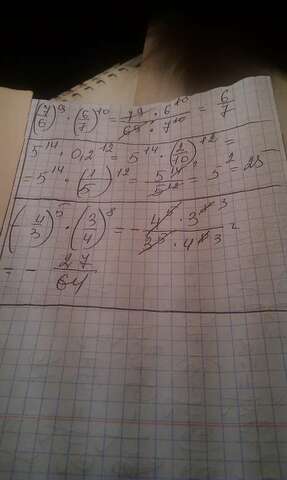 (7/6)^9 · (6/7)^10 = 7^9 · 6^10 / 6^9 · 7^10 = 6/7
5^14 · 0,2^12 = 5^14 · (2/10)^12 =
= 5^14 · (1/5)^12 = 5^14 / 5^12 = 5^2 = 25
(- 4/3)^5 · (3/4)^8 = - 4^5 · 3^8 3 / 3^5 · 4^8 3
= - 27/64